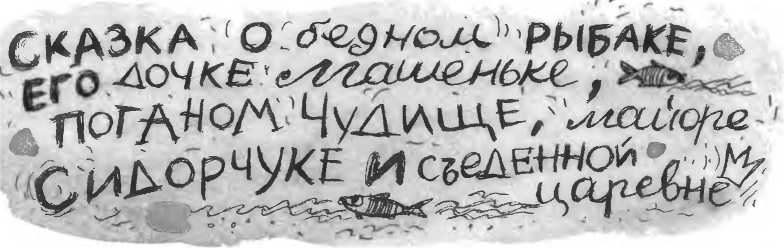 СКАЗКА О бедном РЫБАКЕ,
ЕГО ДОЧКЕ Машеньке,
ПОГАНОМ ЧУДИЩЕ, майоре
СИДОРЧУКЕ И съеДЕННОЙ
царевне